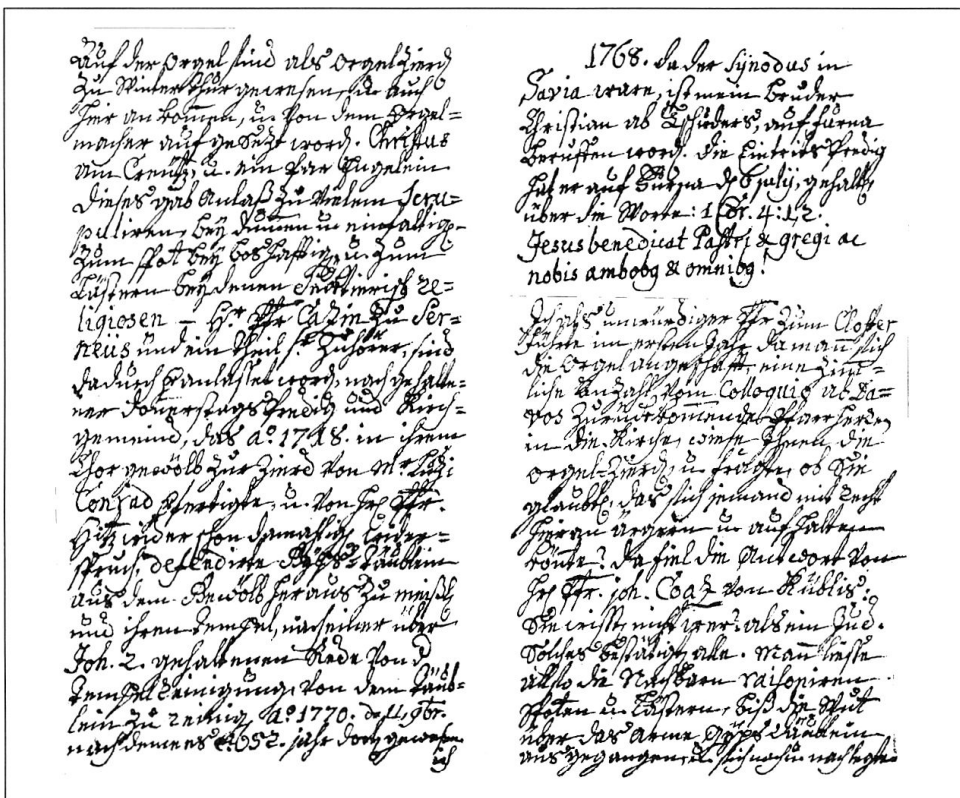 Auf der Orgel sind als Orgelzierd
zu Winterthur gewesen, u. auch
hier ankommen, u. von dem Orgel-
macher aufgesetzt word. Christus
am Creutz, u. ein Par Engelein
dieses gab Anlaß zu vielem Scru-
puliren, bey dumen u. einfältig.
zum Spot bey boshafftig, u. zum
Lästern bey denen Sectierisch re-
ligiosen — Hr. Pfr. Catzin zu Ser-
neüs und ein theil sr. Zuhörer, sind
dadurch veranlasset word, nach gehalte-
ner donerstags Predig und Kirch-
gemeind, das Ao. 1718. in ihrem
Chor gewölb zur Zierd von Mr.
Conrad verfertigte, u. von Hr. Pfr.
wider schon damahlig wider-
spruch, defendirte Gÿps-Täublein
aus dem Gewölb heraus zu meißl,
und ihren Tempel, nach einer über
Joh. 2. gehaltenen Rede von d
Tempel Reinigung, von dem Täub-
lein zu reinig. Ao. 1770. d. 9br.
nach demees 52. jahr dort gewesen
ich
1768. da der Synodus in
Savia ware, ist mein Bruder
Christian ab Tschiders, auf furna
beruffen word. die Eintrits Predig
hat er auf furna d 6 july, gehalt,
über die Worte: 1 Cor. 4:1,2.
Jesus benedicat Pastri & gregi ac
nobis ambobg & omnibg!
Ich als unwürdiger Pfr zum Closter
führte im ersten Jahr da mann sich
die Orgel angeschaft, eine Zim-
liche Anzahl, vom Colloquio ab Da-
vos zurück kommender Pfarrherren
in die Kirche, wiese Ihnen die
Orgel-Zierd, u. fragte, ob Sie
glaubt, das sich jemand mit Recht
hieran ärgern u. aufhalten
könte? da fiel die Antwort von
Hr. Pfr. joh. Coaz von Küblis:
Sie wisse nicht wer? als ein Jud.
Solches bestätigt alle. Mann liesse
also die Nachbarn raisoniren
Spoten u. Lästern, biß die Wut
über das arme Gÿps Täublein
ausgegangen, u. sich nach u. nach legte.